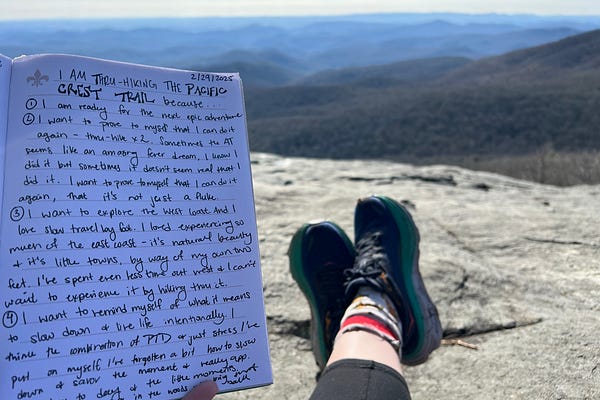 I AM THRU-HIKING THE PACIFIC 2/29/2025
CREST TRAIL because....
① I am ready for the next epic adventure
② I want to prove to myself that I can do it
again - thru-hike x 2. Sometimes the AT
seems like an amazing fever dream, I know I
did it but sometimes it doesn't seem real that I
did it. I want to prove to myself that I can do it
again, that it's not just a fluke.
③ I want to explore the West Coast and I
love slow travel by foot. I loved experiencing so
much of the east coast - it's natural beauty
& it's little towns, by way of my own two
feet. I've spent even less time out west & I can't
wait to experience it by hiking thru it.
④ I want to remind myself of what it means
to slow down & live life intentionally. I
think the combination of PTD & just stress I've
put on myself I've forgotten a bit how to slow
down & savor the moment & really app.
day to day & the little moments.
in the woods